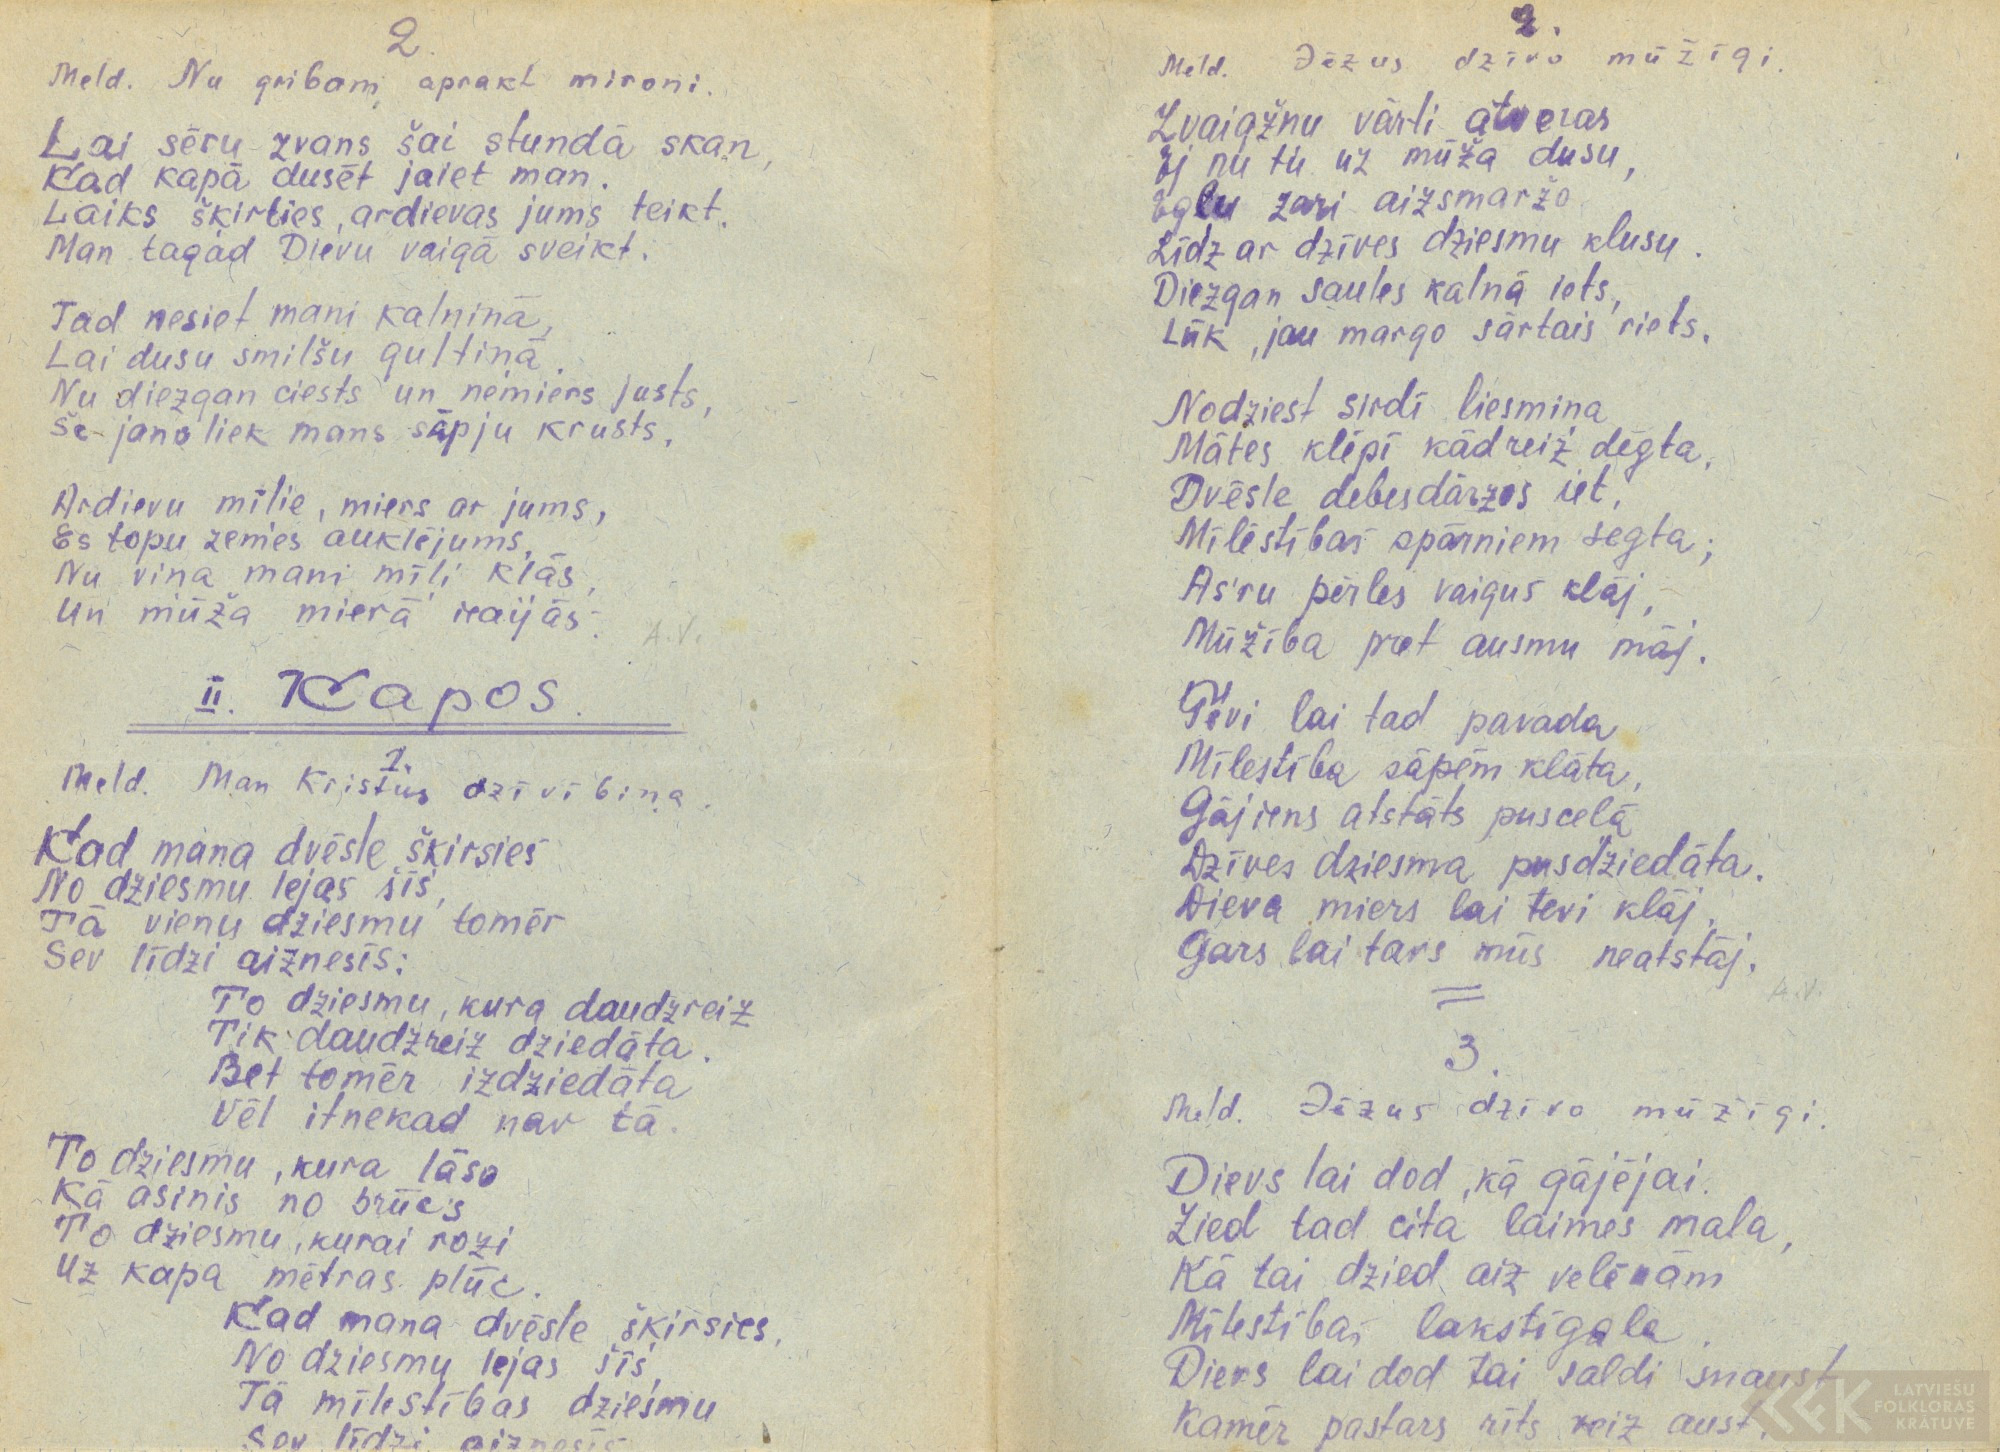 2.
Meld. Nu gribam aprakt mironi.
Lai sēru zvans šai stundā skan,
Kad kapā dusēt jaiet man.
Laiks šķirties, ardievas jums teikt.
Man tagad Dievu vaigā sveikt.
Tad nesiet mani kalniņā,
Lai dusu smilšu gultiņā.
Nu diezgan ciests un nemiers justs,
Še janoliek mans sāpju krusts.
Ardievu mīlie, miers ar jums,
Es topu zemes auklējums,
Nu viņa mani mīļi klās,
Un mūža mierā
A.V.
II. Kapos.
1.
Meld. Man Kristus dzīvībiņa.
Kad mana dvēsle šķirsies
No dziesmu lejas šīs,
Tā vienu dziesmu tomēr
Sev līdzi aiznesīs:
To dziesmu, kura daudzreiz
Tik daudzreiz dziedāta.
Bet tomēr izdziedāta
Vēl itnekad nav tā.
To dziesmu, kura lāso
Kā asinis no brūc's
To dziesmu, kurai rozi
Uz kapa mētras plūc.
Kad mana dvēsle šķirsies,
No dziesmu lejas šīs,
Tā mīlestības dziesmu
Sev līdzi aiznesīs
2.
Meld. Jēzus dzīvo mūžīgi.
Zvaigžņu vārti atveras
Ej nu tu uz mūža dusu,
Egļu zari aizsmaržo
Līdz ar dzīves dziesmu klusu.
Diezgan saules kalnā iets,
Lūk, jau margo sārtais riets.
Nodziest sirdī liesmiņa
Mātes klēpī kādreiz dēgta,
Dvēsle debesdārzos iet,
Mīlēstības spārniem segta;
As'ru pērles vaigus klāj,
Mūžība pret ausmu māj.
Tēvi lai tad pavada
Mīlestība sāpēm klāta,
Gājiens atstāts pusceļā
Dzīves dziesma pusdziedāta.
Dieva miers lai tevi klāj,
Gars lai tavs mūs neatstāj.
A.V.
3.
Meld. Jēzus dzīvo mūžīgi.
Dievs lai dod, kā gājējai
Zied tad cita laimes mala,
Kā tai dzied aiz velēnām
Mīlestības lakstīgala.
Dievs lai dod tai saldi snaust
Kamēr pastars rīts reiz aust.
LATVIEŠU
FOLKLORAS
KRĀTUVE